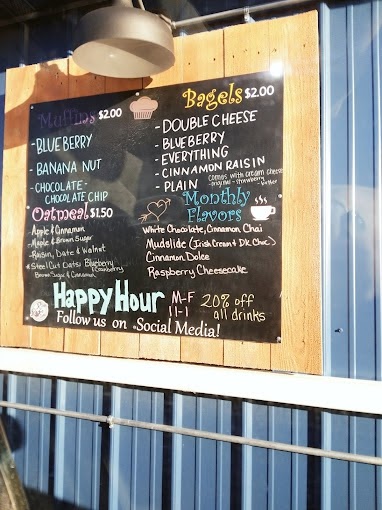 Muffins $2.00
- BLUEBERRY
- BANANA NUT
- CHOCOLATE-
CHOCOLATE CHIP
Oatmeal $1.50
- Apple & Cinnamon
- Maple & Brown Sugar
- Raisin, Date & Walnut
Steel Cut Oats: Blueberry
& Cranberry
Brown Sugar & Cinnamon
Bagels $2.00
- DOUBLE CHEESE
- BLUEBERRY
- EVERYTHING
- CINNAMON RAISIN
- PLAIN
comes with cream cheese
-original -strawberry
-butter
Monthly
Flavors
White Chocolate, Cinnamon Chai
Mudslide (Irish Cream & Dk Choc)
Cinnamon Dolce
Raspberry Cheesecake
Happy Hour M-F 20% off
11-1 all drinks
Follow us on Social Media!